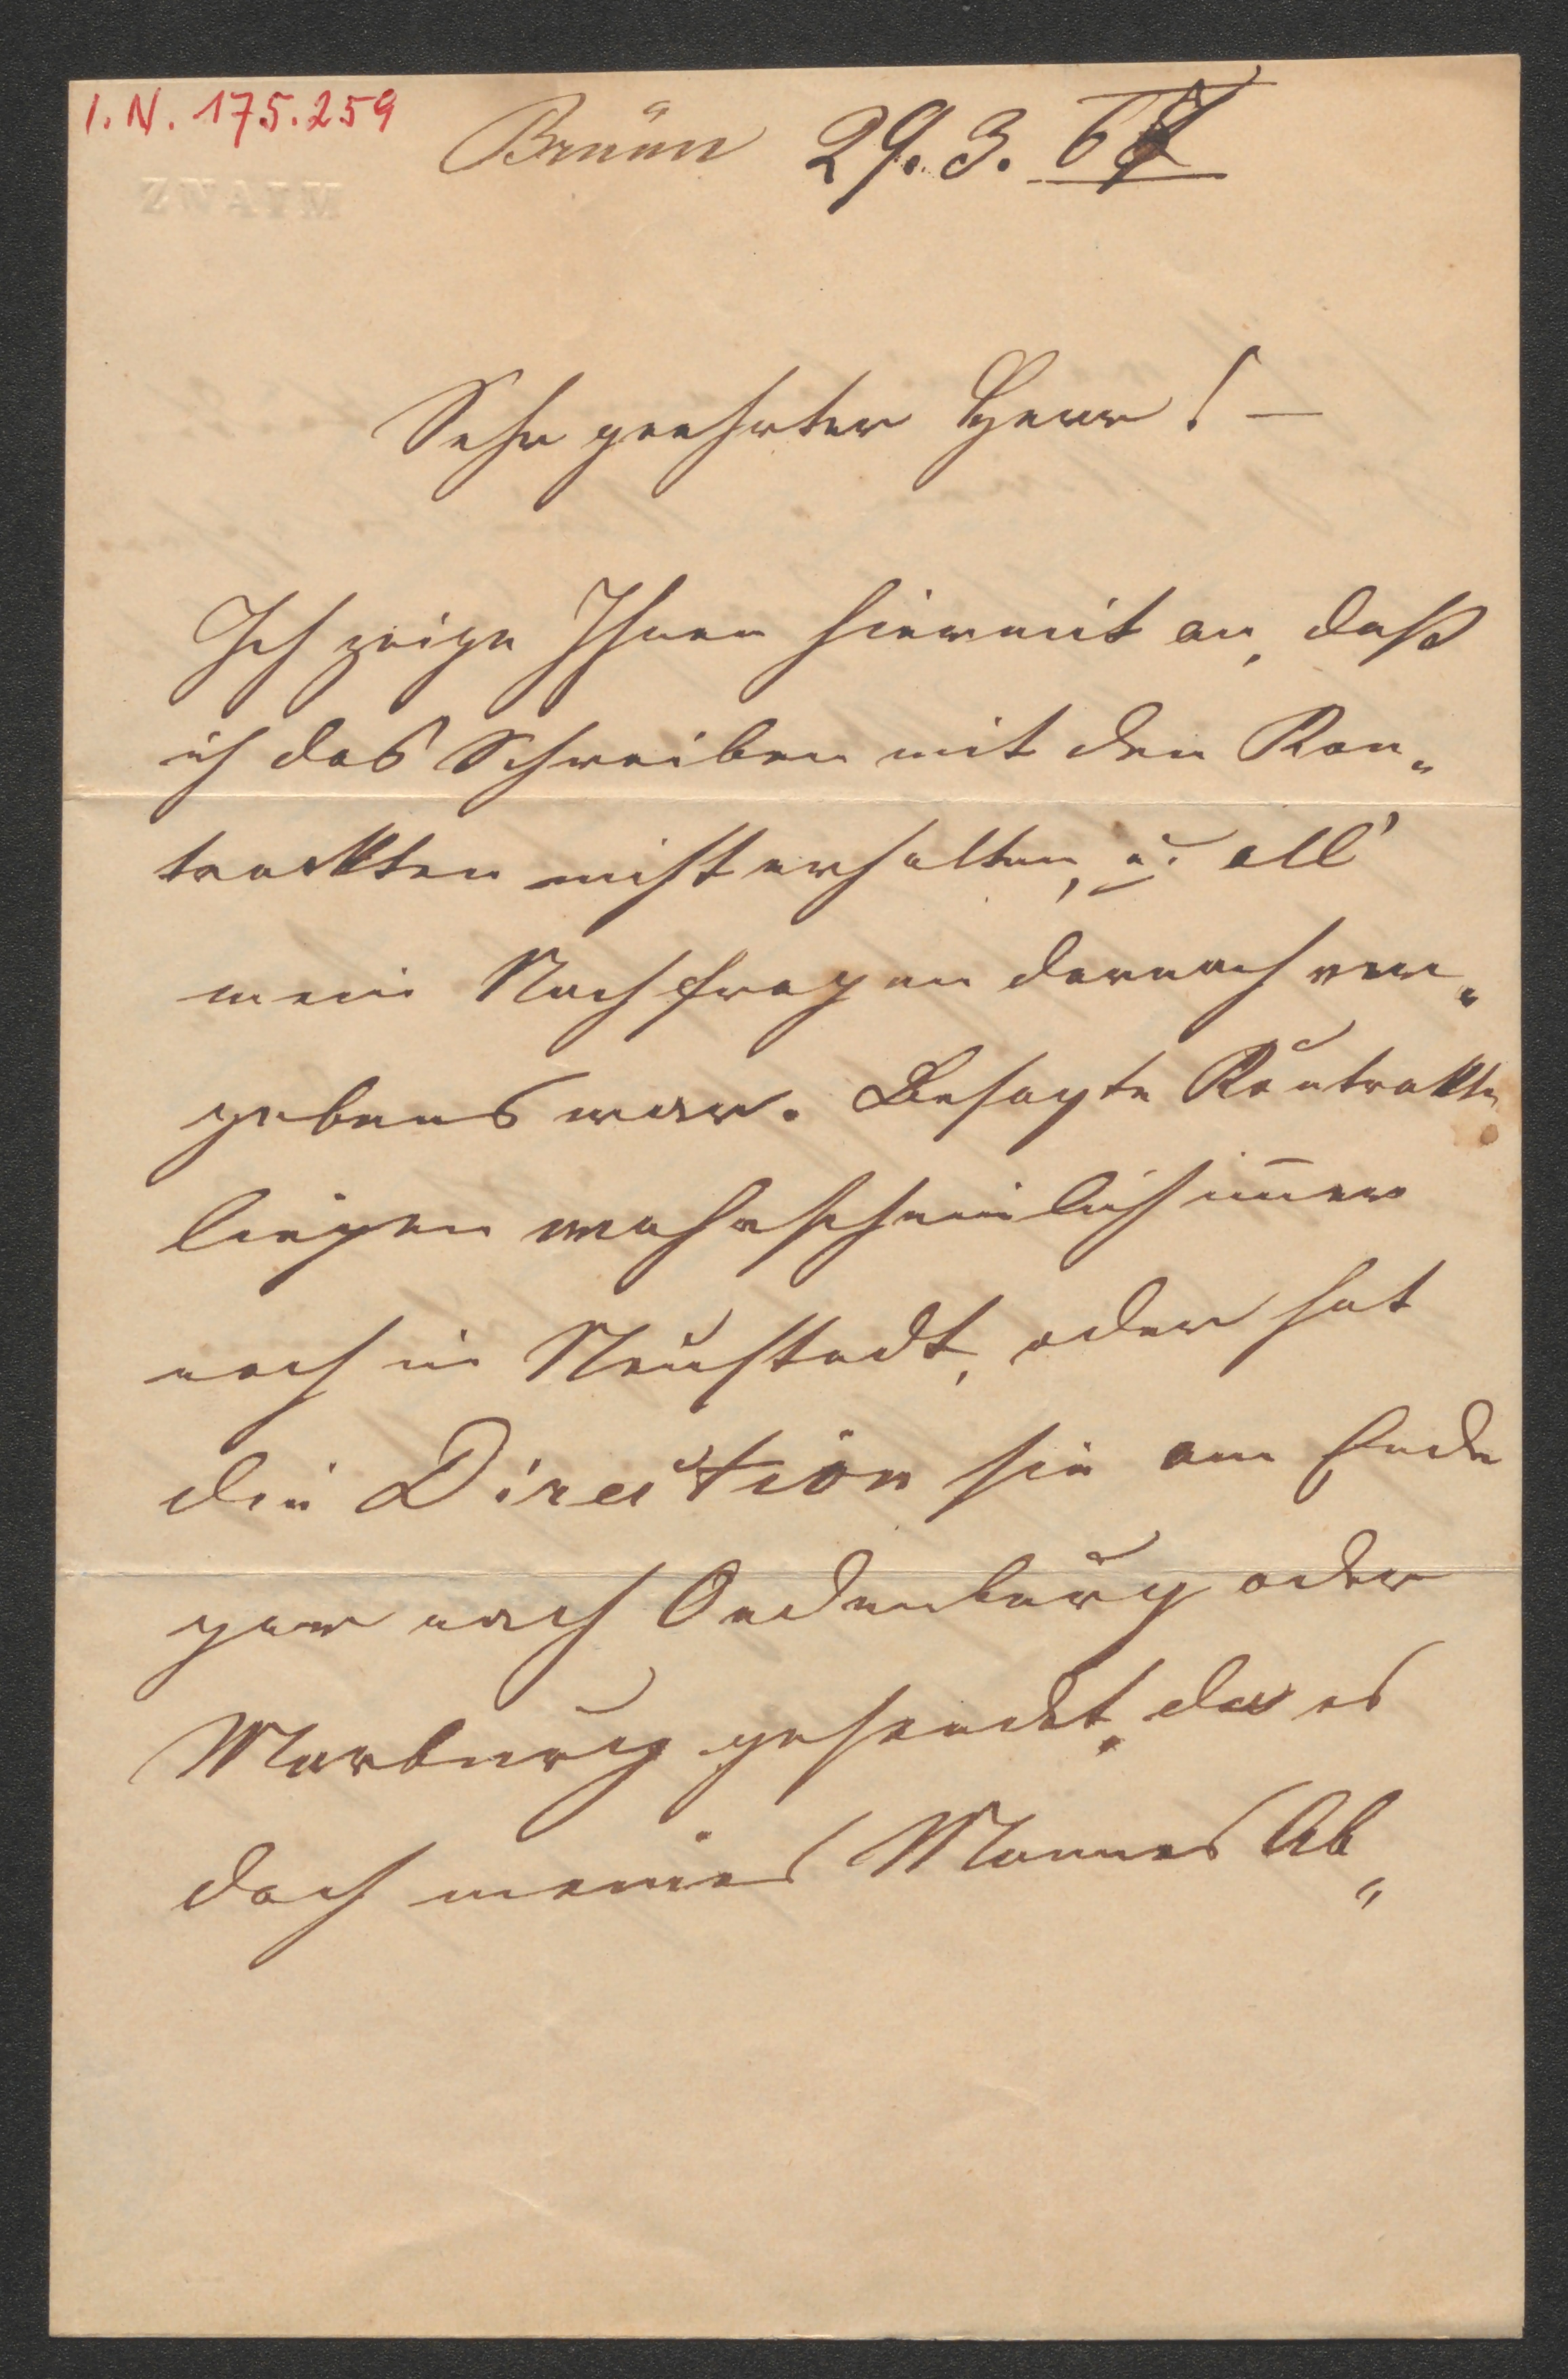 I. N. 175.259
Brünn 29. 3. 67
ZNAIM
Sehr geehrter Herr! —
Ich zeige Ihnen hiermit an, daß
ich das Schreiben mit den Kon„
trackten nicht erhalten, u. all'
mein Nachfragen darnach ver„
gebens war. Besagte Kontrakte
liegen wahrscheinlich im̄er
noch in Neustadt, oder hat
die Direction sie am Ende
gar nach Oedenburg oder
Marburg gesendet, da es
doch meines Mannes Ab„